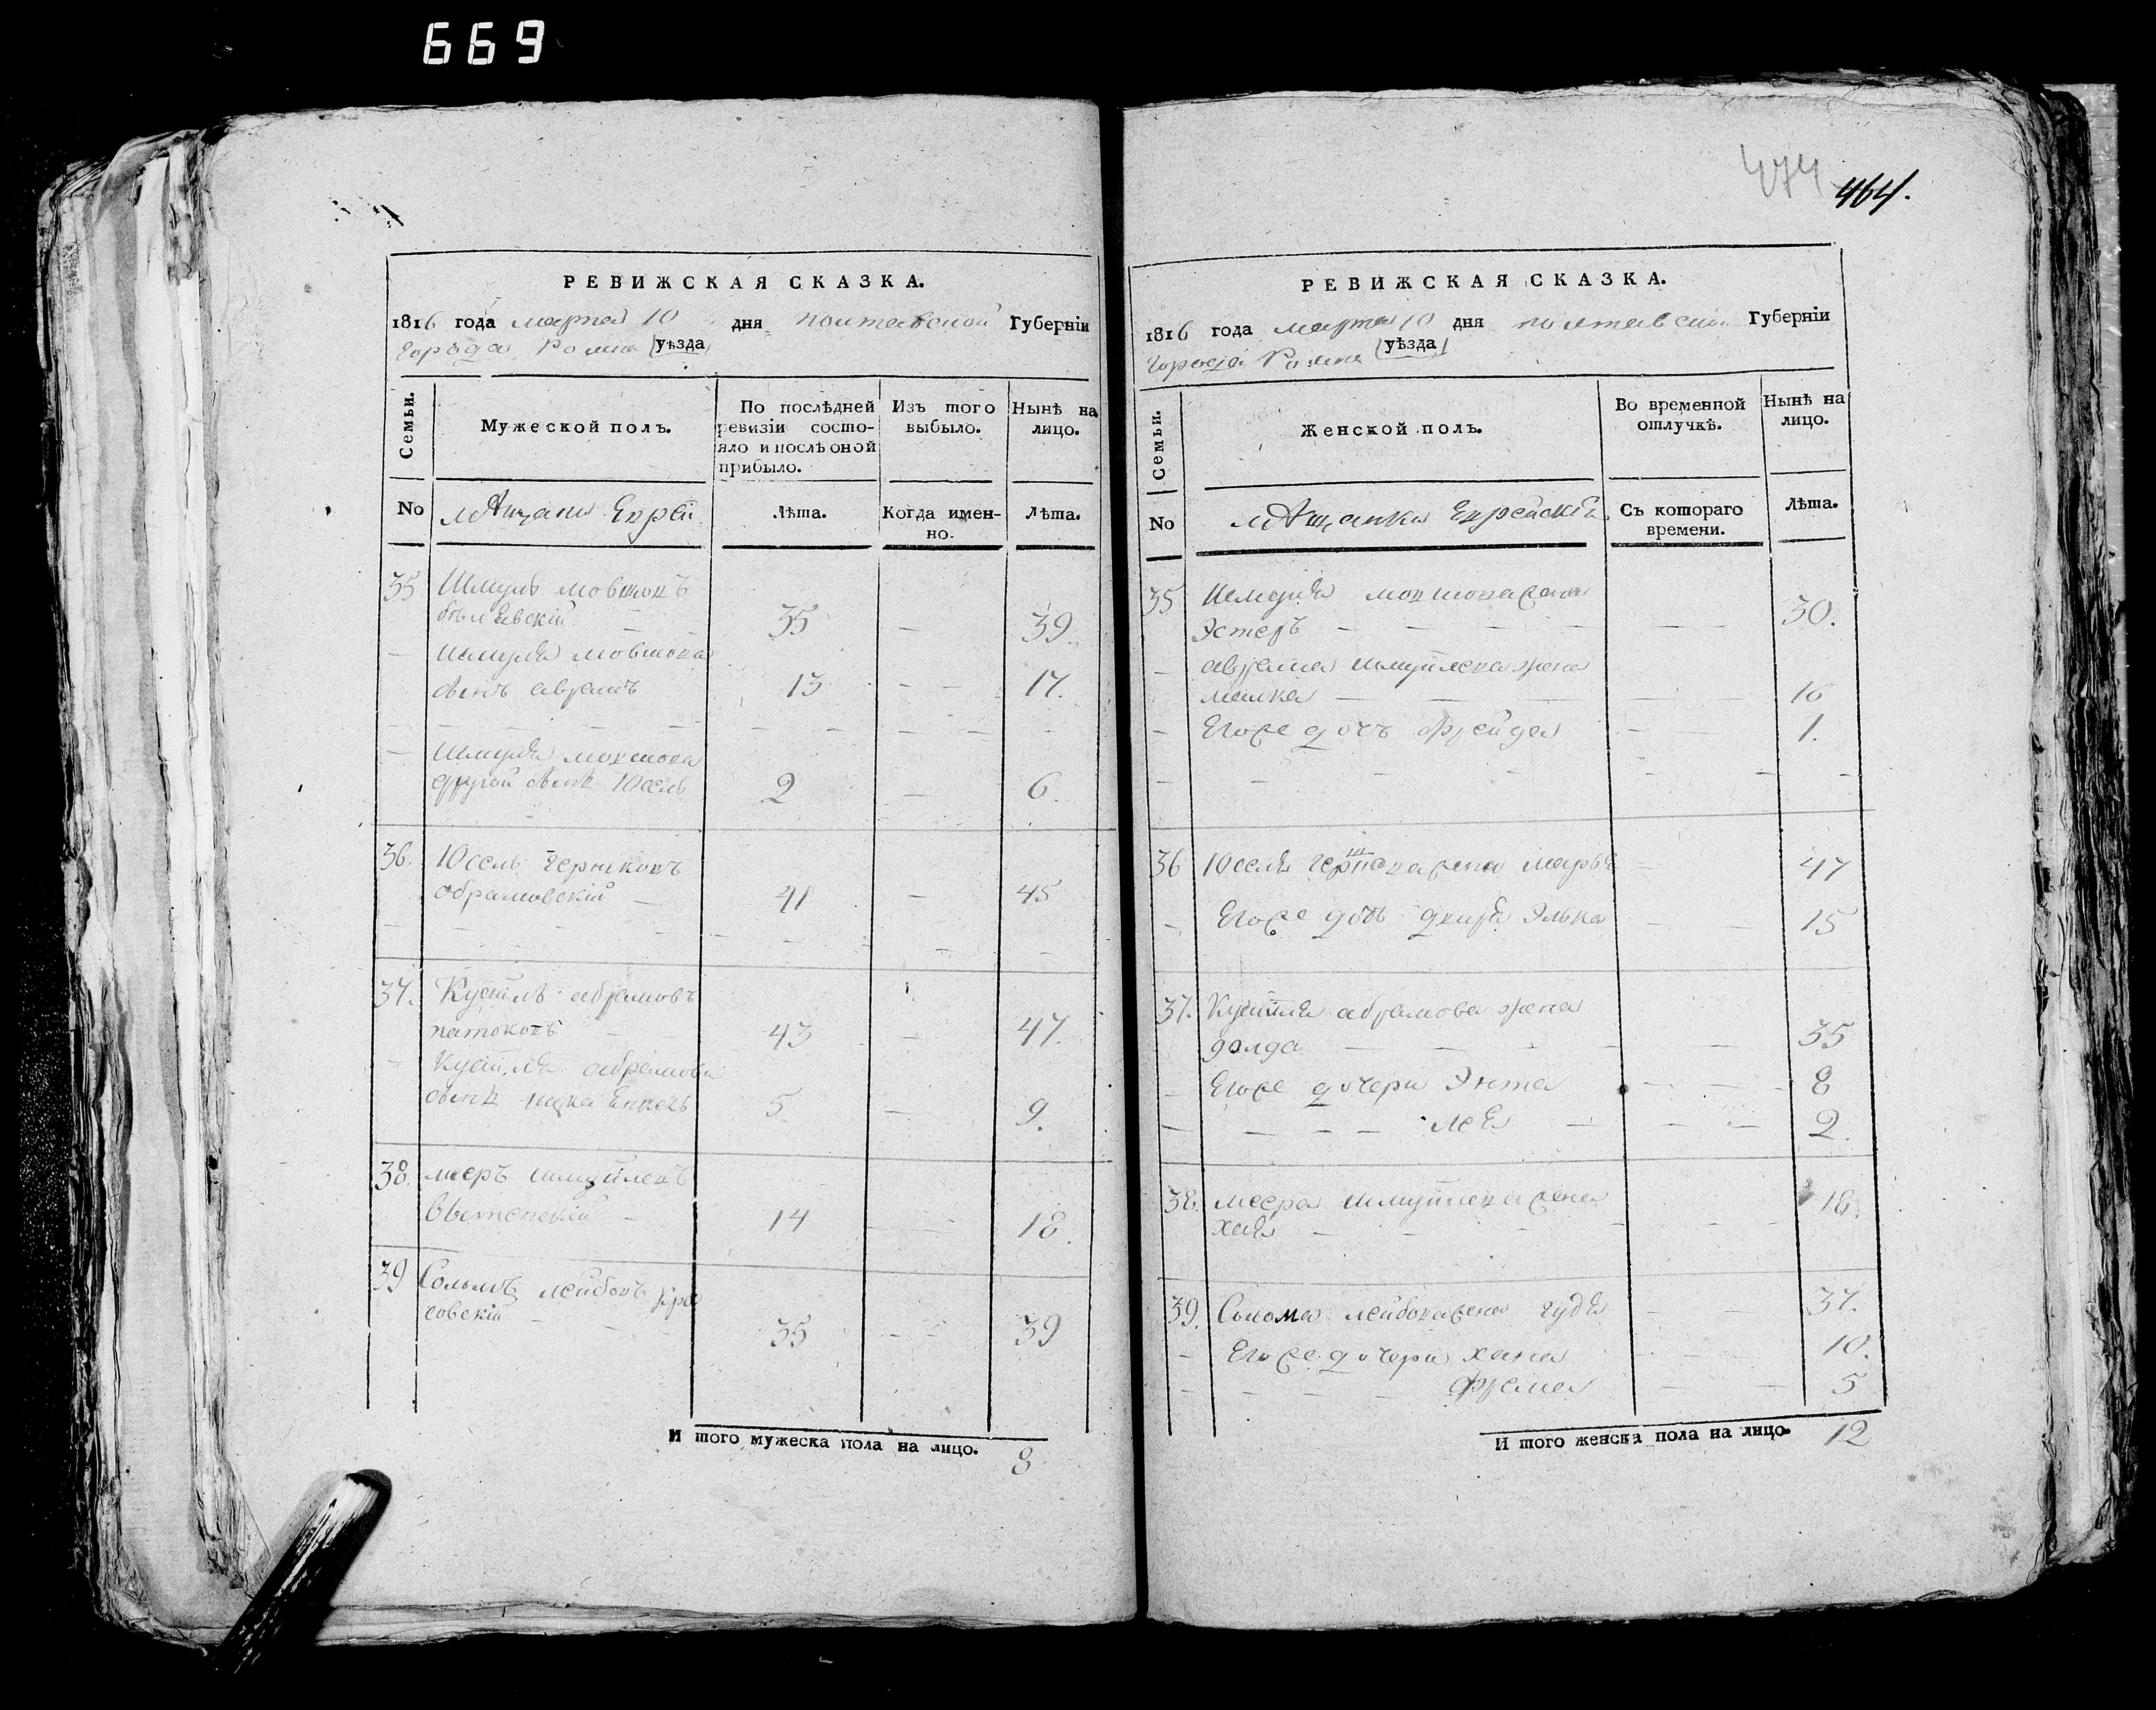 669
474 464.
РЕВИЖСКАЯ СКАЗКА.
1816 года марта 10 дня полтавской Губерніи
города Ромна уѣзда
Семьи.
Мужеской полъ.
По послѣдней ревизіи состо-
яло и послѣ оной прибыло.
Изъ того выбыло.
Нынѣ на лицо.
No мѣщани Еврей
Лѣта.
Когда имен-
но.
Лѣта.
35 Шмуль мовшовъ
бѣлѣвскій 35 39.
Шмуля мовшова
сынъ аврамъ 13 17.
Шмуля мовшова
другой сынъ Юсель 2 6.
36. Юсель гершковъ
абрамовскій 41 45
37. абрамовъ
43 47.
абрамова
сынъ 5 9.
38. мееръ шмуйлевъ
14 18.
39 лейбовъ
35 39
И того мужеска пола на лицо. 8
РЕВИЖСКАЯ СКАЗКА.
1816 года марта 10 дня полтавской Губерніи
города Ромна уѣзда
Семьи.
Женской полъ.
Во временной отлучкѣ.
Нынѣ на лицо.
No мѣщанки Еврейскія
Съ котораго времени.
Лѣта.
35 Шмуля мовшова жена
Эстеръ 30.
аврама шмуйлева жена
малка 16
Егоже дочъ фрейда 1.
36 Юселя жена 47
Егоже дочь Элька 15
37. абрамова жена
35
Егоже дочери Энта 8
лея 2.
38. меера шмуйлева жена
хая 18.
39. лейбова жена 37.
Егоже дочери хана 10.
фрума 5
И того женска пола на лицо. 12